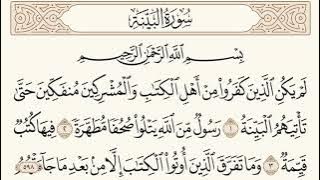 سُورَةُ البَيِّنَةِ
بِسْمِ اللَّهِ الرَّحْمَٰنِ الرَّحِيمِ
لَمْ يَكُنِ الَّذِينَ كَفَرُوا مِنْ أَهْلِ الْكِتَابِ وَالْمُشْرِكِينَ مُنفَكِّينَ حَتَّىٰ
تَأْتِيَهُمُ الْبَيِّنَةُ ١ رَسُولٌ مِّنَ اللَّهِ يَتْلُو صُحُفًا مُّطَهَّرَةً ٢ فِيهَا كُتُبٌ
قَيِّمَةٌ ٣ وَمَا تَفَرَّقَ الَّذِينَ أُوتُوا الْكِتَابَ إِلَّا مِن بَعْدِ مَا جَاءَتْهُمُ
٥٩٨